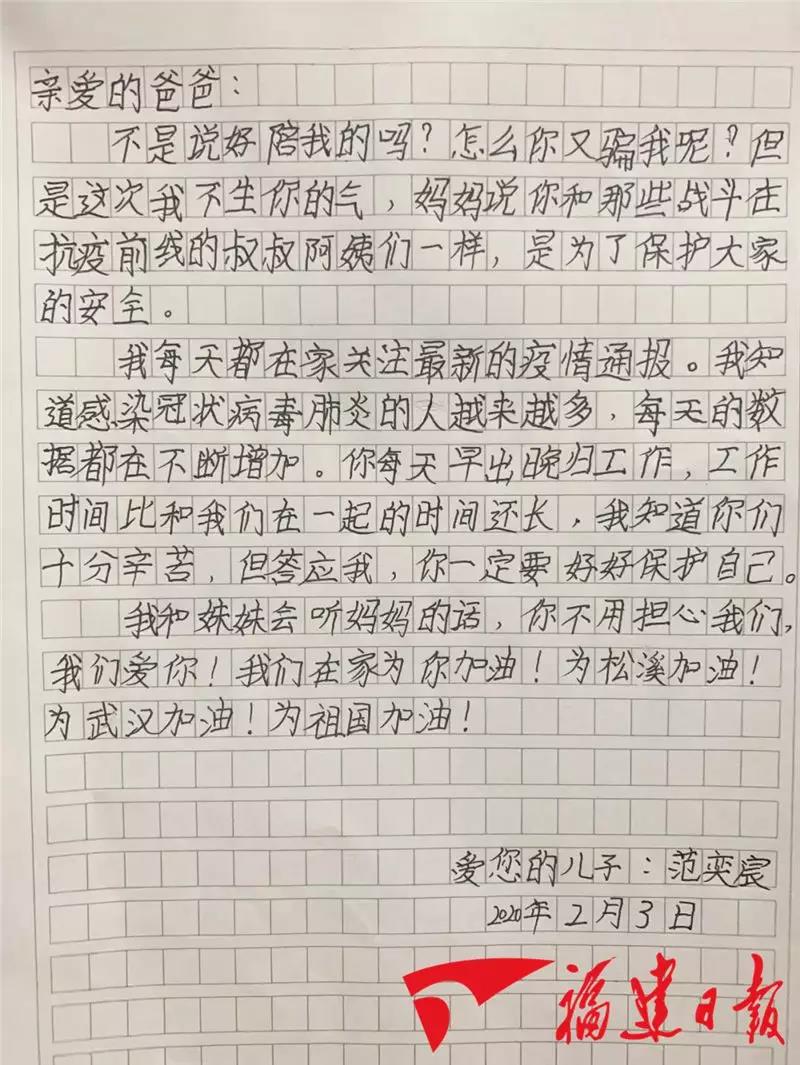 亲爱的爸爸：
不是说好陪我的吗？怎么你又骗我呢？但
是这次我不生你的气，妈妈说你和那些战斗在
抗疫前线的叔叔阿姨们一样，是为了保护大家
的安全。
我每天都在家关注最新的疫情通报。我知
道感染冠状病毒肺炎的人越来越多，每天的数
据都在不断增加。你每天早出晚归工作，工作
时间比和我们在一起的时间还长，我知道你们
十分辛苦，但答应我，你一定要好好保护自己。
我和妹妹会听妈妈的话，你不用担心我们，
我们爱你！我们在家为你加油！为松溪加油！
为武汉加油！为祖国加油！
爱您的儿子：范奕宸
2020年2月3日
福建日报